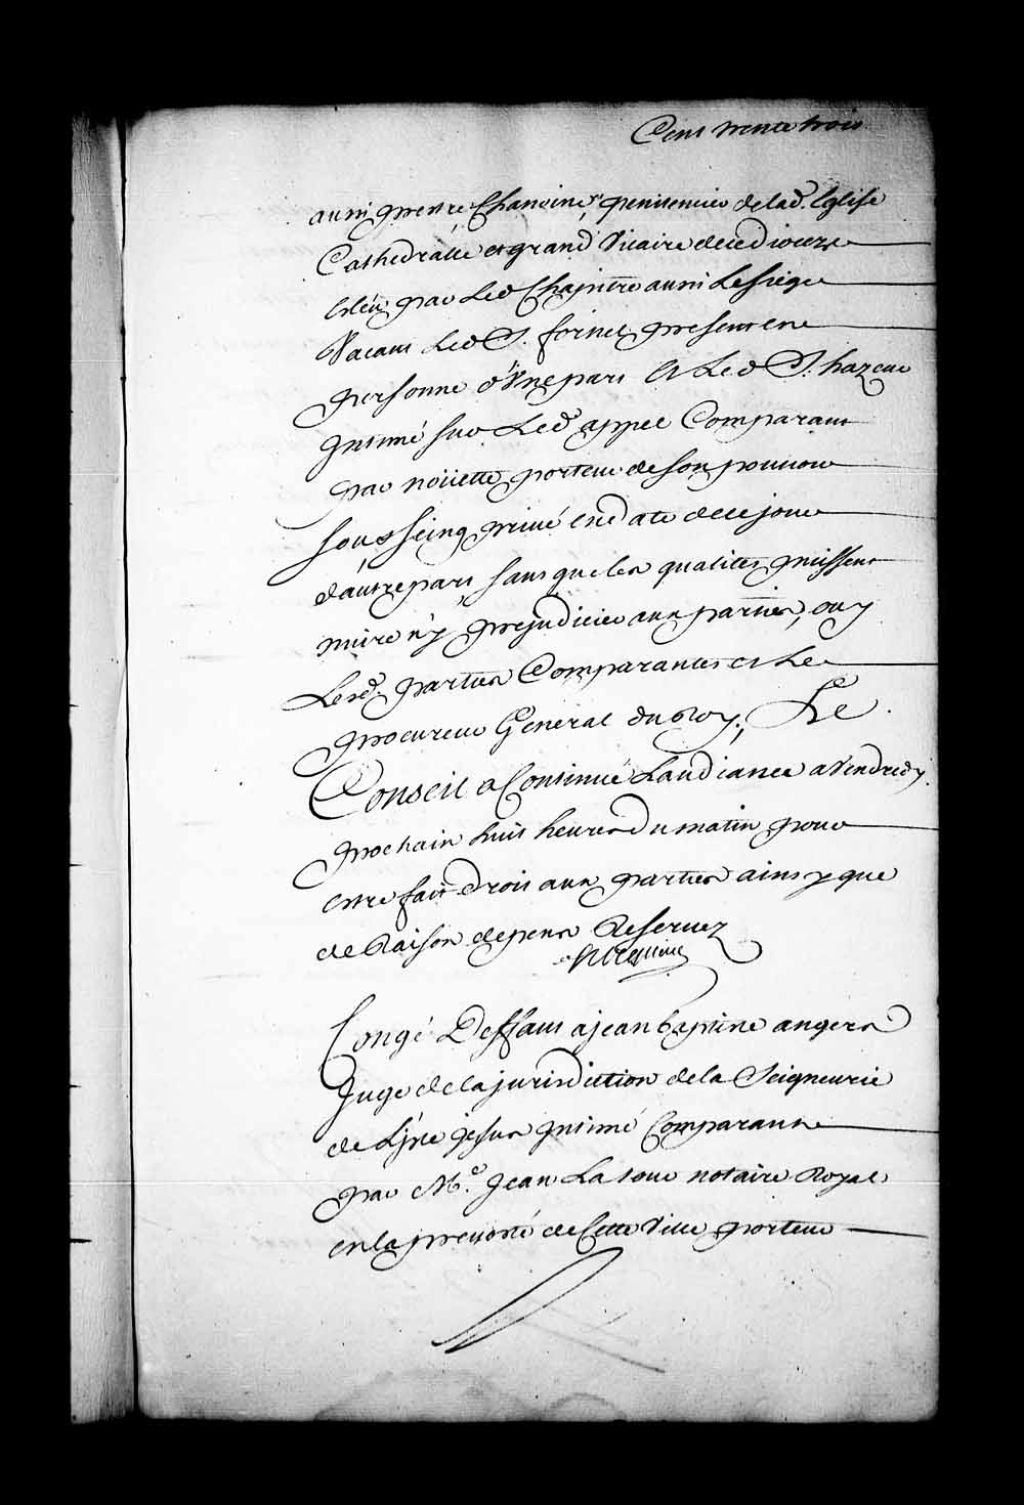 Cent trente trois
aussi prestre Chanoine, penitencier de lad. Eglise
Cathedralle et grand Vicaire de ce dioceze
Eslêu par Led Chapittre aussi Le siege
Vacant Led S. fornel present en
personne d'Une part Et Led S. hazeur
Intimé sur Led appel Comparant
par noüette porteur de son pouvoir
sous seing privé en date de ce jour
d'autre part, sans que les qualités puissent
nuire n'y prejudicier aux parties, ouy
Lesd. parties Comparantes et Le
procureur General du Roy; Le
Conseil a Continué Laudiance a Vendredy
prochain huit heures du matin pour
estre fait droit aux parties ainsy que
de Raison depens Reservez
Congé Deffaut a jean baptiste angers
Juge de la jurisdiction de la Seigneurie
de L'jsle jesus Intimé Comparant
par Me. Jean Latour notaire Royal
en la prevosté de Cette Ville porteur